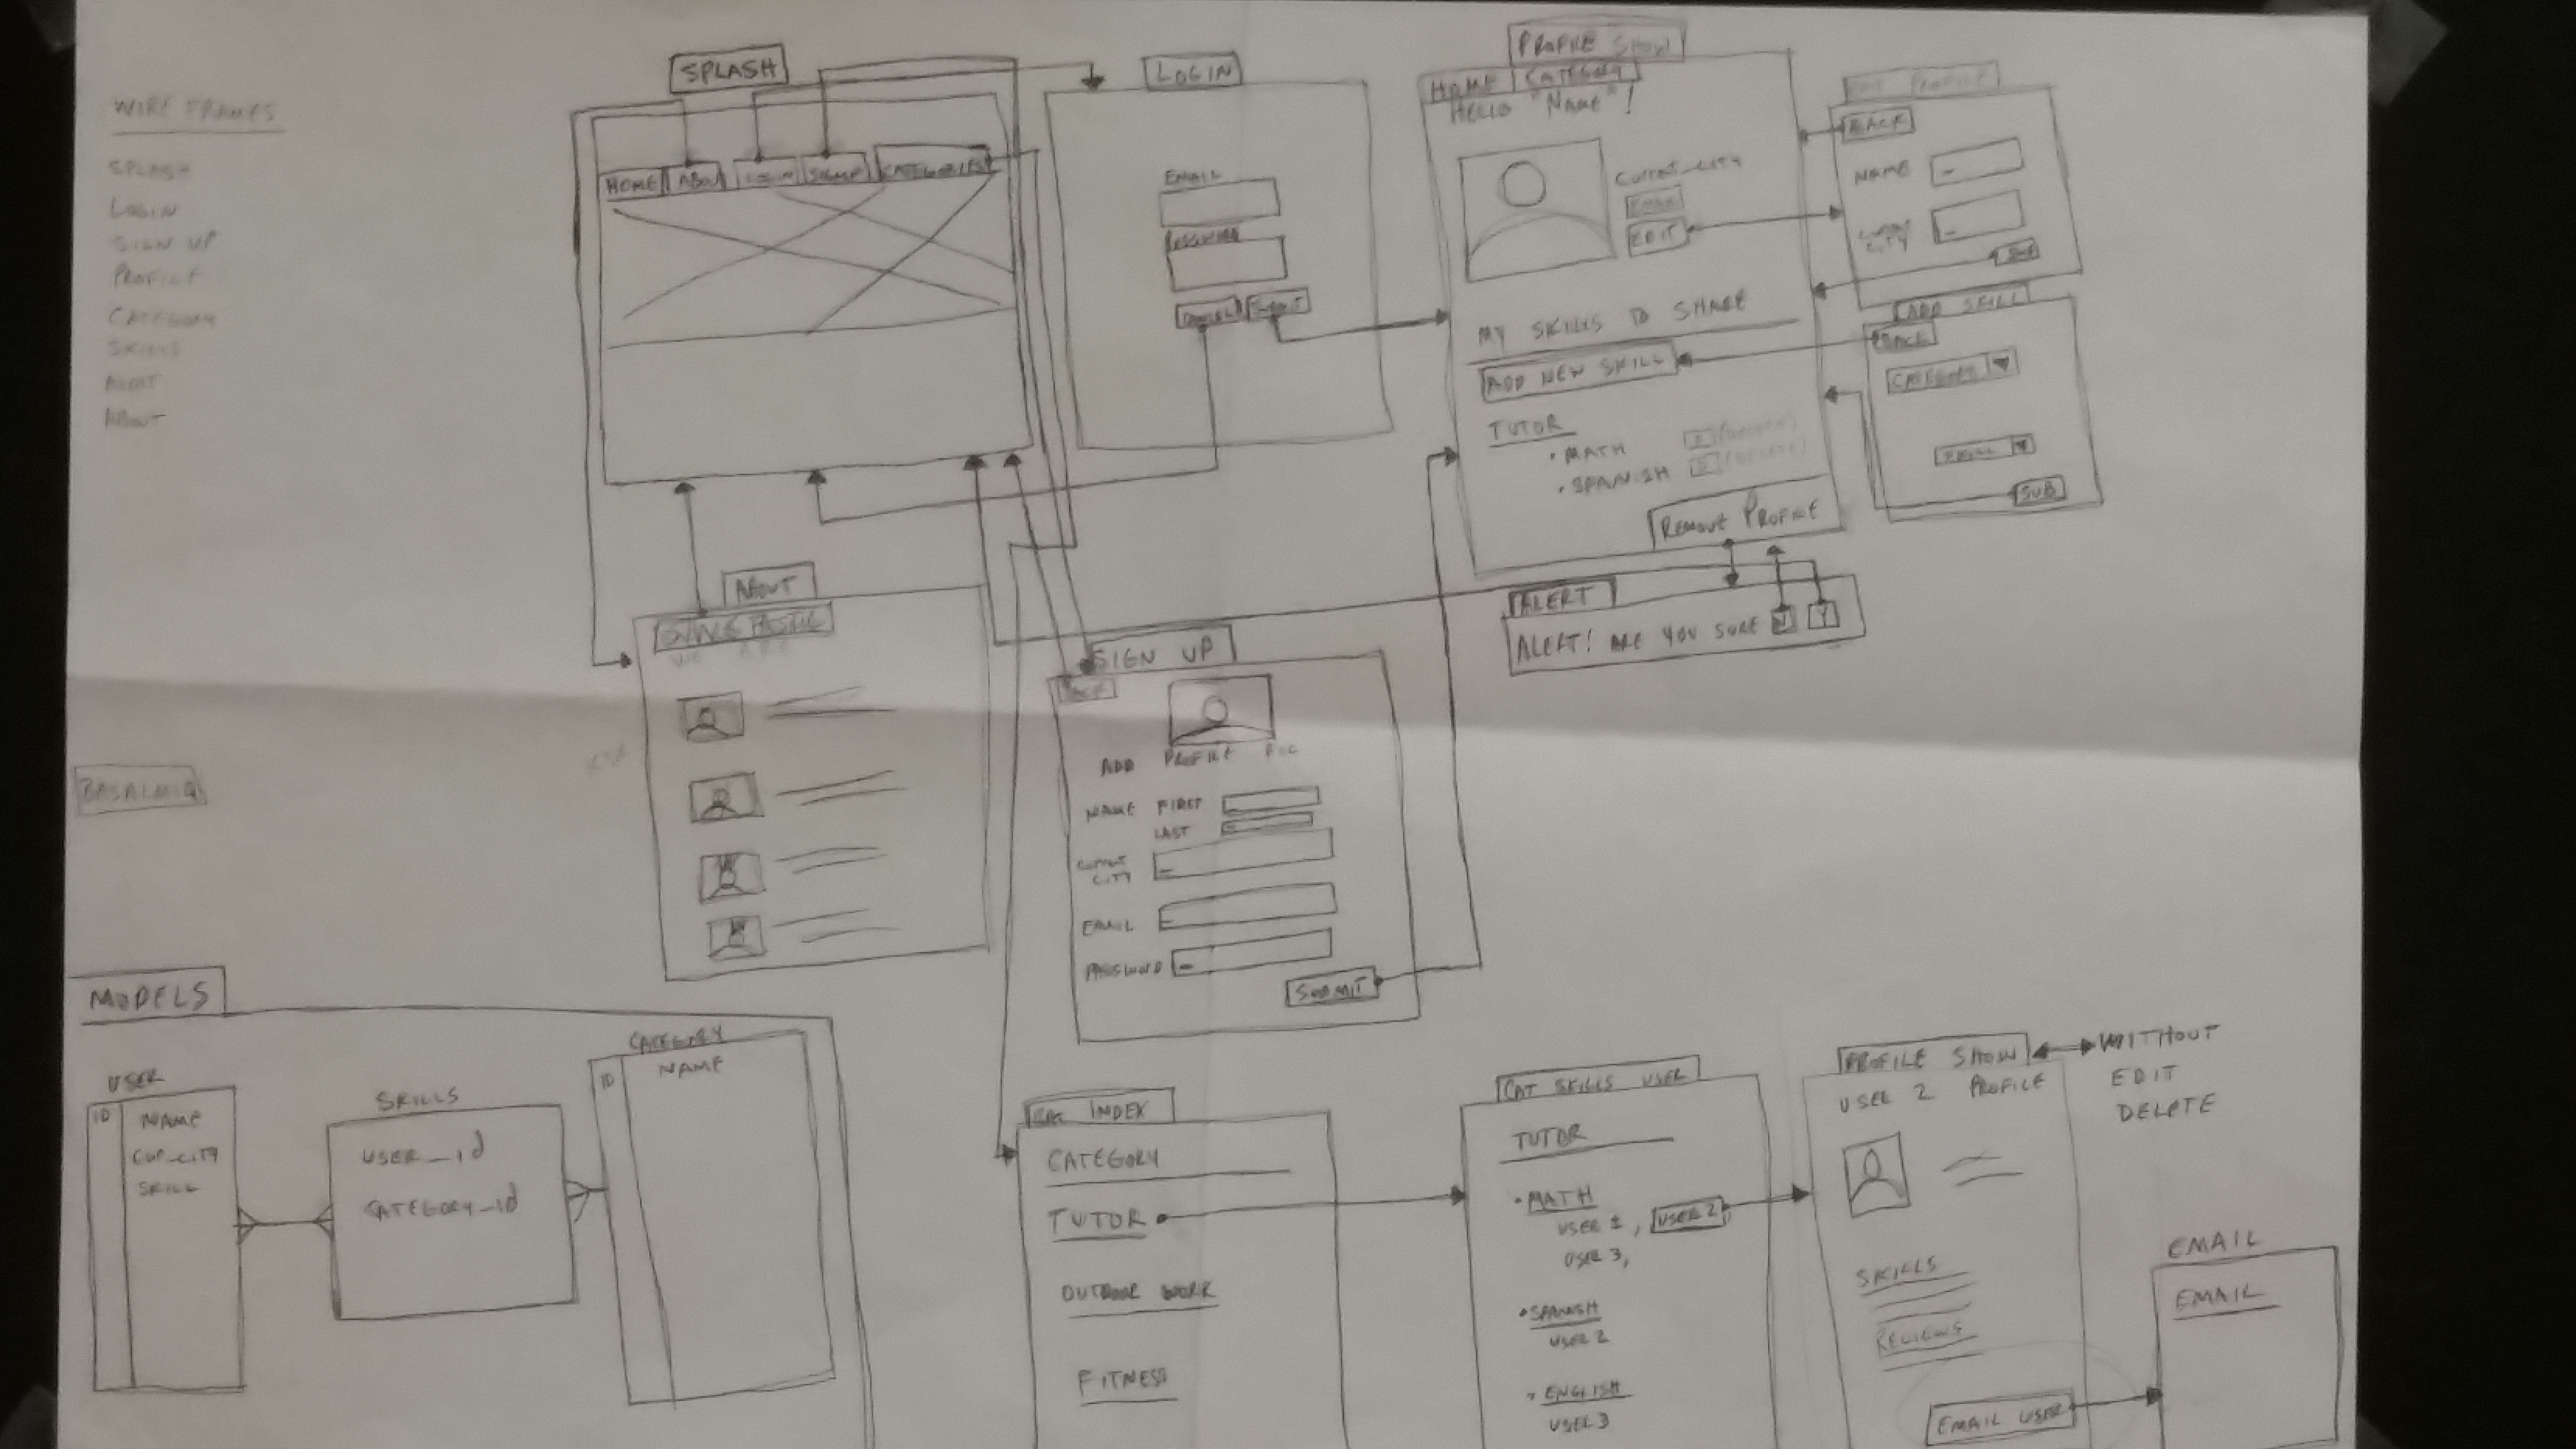 WIRE FRAMES
SPLASH
LOGIN
SIGN UP
PROFILE
CATEGORY
SKILLS
ALERT
ABOUT
BASALMIQ
SPLASH
HOME ABOU LOGIN SIGNUP CATEGORIES
LOGIN
EMAIL
PASSWORD
CANCEL SUBMIT
PROFILE SHOW
HOME CATEGORY
HELLO "NAME"!
CURRENT_CITY
EMAIL
EDIT
MY SKILLS TO SHARE
ADD NEW SKILL
TUTOR
• MATH X (DELETE)
• SPANISH X (DELETE)
REMOVE PROFILE
EDIT PROFILE
BACK
NAME
CURRENT CITY
SUB
ADD SKILL
BACK
CATEGORY
SKILL
SUB
ALERT
ALERT! ARE YOU SURE N Y
ABOUT
WE ARE
SIGN UP
BACK
ADD PROFILE PIC
NAME FIRST
LAST
CURRENT
CITY
EMAIL
PASSWORD
SUBMIT
MODELS
USER
ID NAME
CUR_CITY
SKILL
SKILLS
USER_id
CATEGORY_id
CATEGORY
ID NAME
CAT INDEX
CATEGORY
TUTOR
OUTDOOR WORK
FITNESS
CAT SKILLS USER
TUTOR
• MATH
USER 1, USER 2,
USER 3,
• SPANISH
USER 2
• ENGLISH
USER 3
PROFILE SHOW
USER 2 PROFILE
SKILLS
REVIEWS
EMAIL USER
WITHOUT
EDIT
DELETE
EMAIL
EMAIL